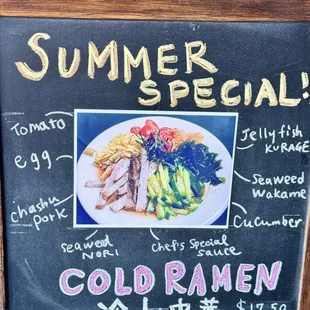 SUMMER
SPECIAL!
Tomato
egg
chashu
pork
Jellyfish
KURAGE
Seaweed
Wakame
Cucumber
Seaweed
NORI
Chef's Special
sauce
COLD RAMEN
$17.50